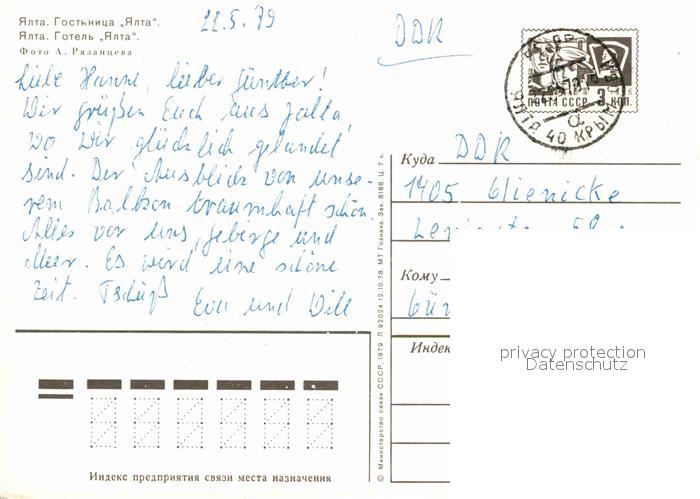 Ялта. Гостьница „Ялта“.
Ялта. Готель „Ялта“.
Фото А. Рязанцева
22.5.79
DDR
Liebe Hanni, lieber Günther!
Wir grüßen Euch aus Jalta,
wo wir glücklich gelandet
sind. Der Ausblick von unse-
rem Balkon traumhaft schön.
Alles vor uns, Gebirge und
Meer. Es wird eine schöne
Zeit. Tschüß
Eva und Willi
ПОЧТА СССР 3 КОП.
СССР
ЯЛТА 40 КРЫМ
Куда DDR
1405 Glienicke
Кому
Индек
privacy protection
Datenschutz
Индекс предприятия связи места назначения
© Министерство связи СССР, 1979 Л 92024 12.10.78. МТ Гознака. Зак. 8188. Ц. 7 к.